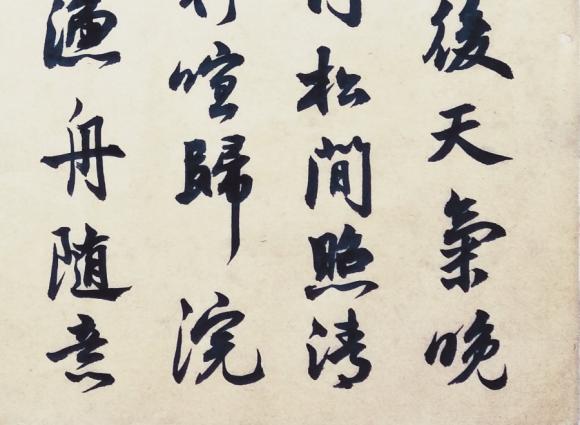 後天氣晚
松間照清
喧歸浣
漁舟随意